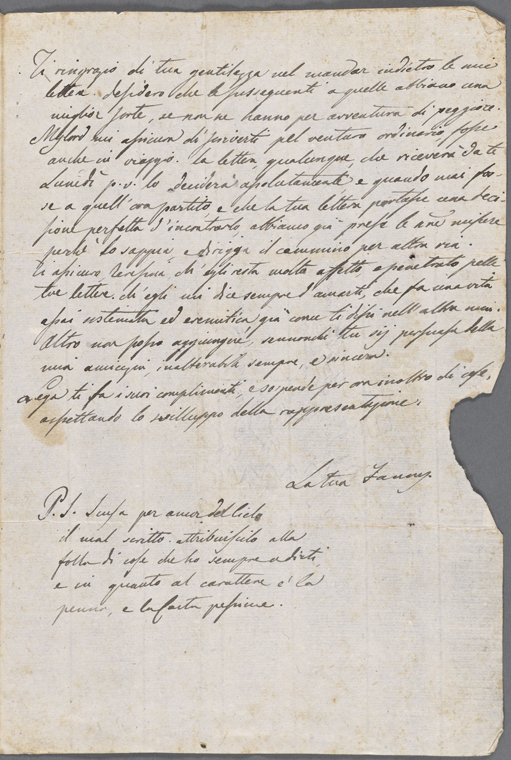 Ti ringrazio di tua gentilezza nel mandar indietro le mie
lettere. desidero che le susseguenti a quelle abbiano una
miglior sorte, se non ne hanno per avventura di peggiore.
Mylord mi assicura di scriverti pel venturo ordinario, fosse
anche in viaggio. la lettera qualunque, che riceverà da te
Lunedì p.v. lo deciderà assolutamente e quando mai fos-
se a quell'ora partito, e che la tua lettera portasse una deci-
sione perfetta d'incontrarlo, abbiamo già prese le misure
perchè lo sappia, e dirigga il cammino per altra via.
Ti assicuro, Teresina, ch'egli resta molto afflitto, e penetrato pelle
tue lettere, ch'egli mi dice sempre d'amarti, che fa una vita
assai sistemata ed eremitica già come ti dissi nell'altra mia.
Altro non posso aggiungere, sennonchè tu sij persuasa della
mia amicizia, inalterabile sempre, e sincera.
Lega ti fa i suoi complimenti, e sospende per ora inoltro di cose,
aspettando lo sviluppo della rappresentazione.
La tua Fanny.
P.S. Scusa per amor del Cielo
il mal scritto. attribuiscilo alla
folla di cose che ho sempre a dirti,
e in quanto al carattere è la
penna, e la Carta pessime.